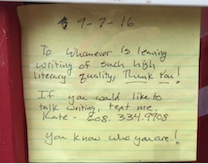 9-7-16
To Whomever is leaving
writing of such high
literary quality, Thank You!
If you would like to
talk writing, text me.
Kate - 608.334.9908
You know who you are!